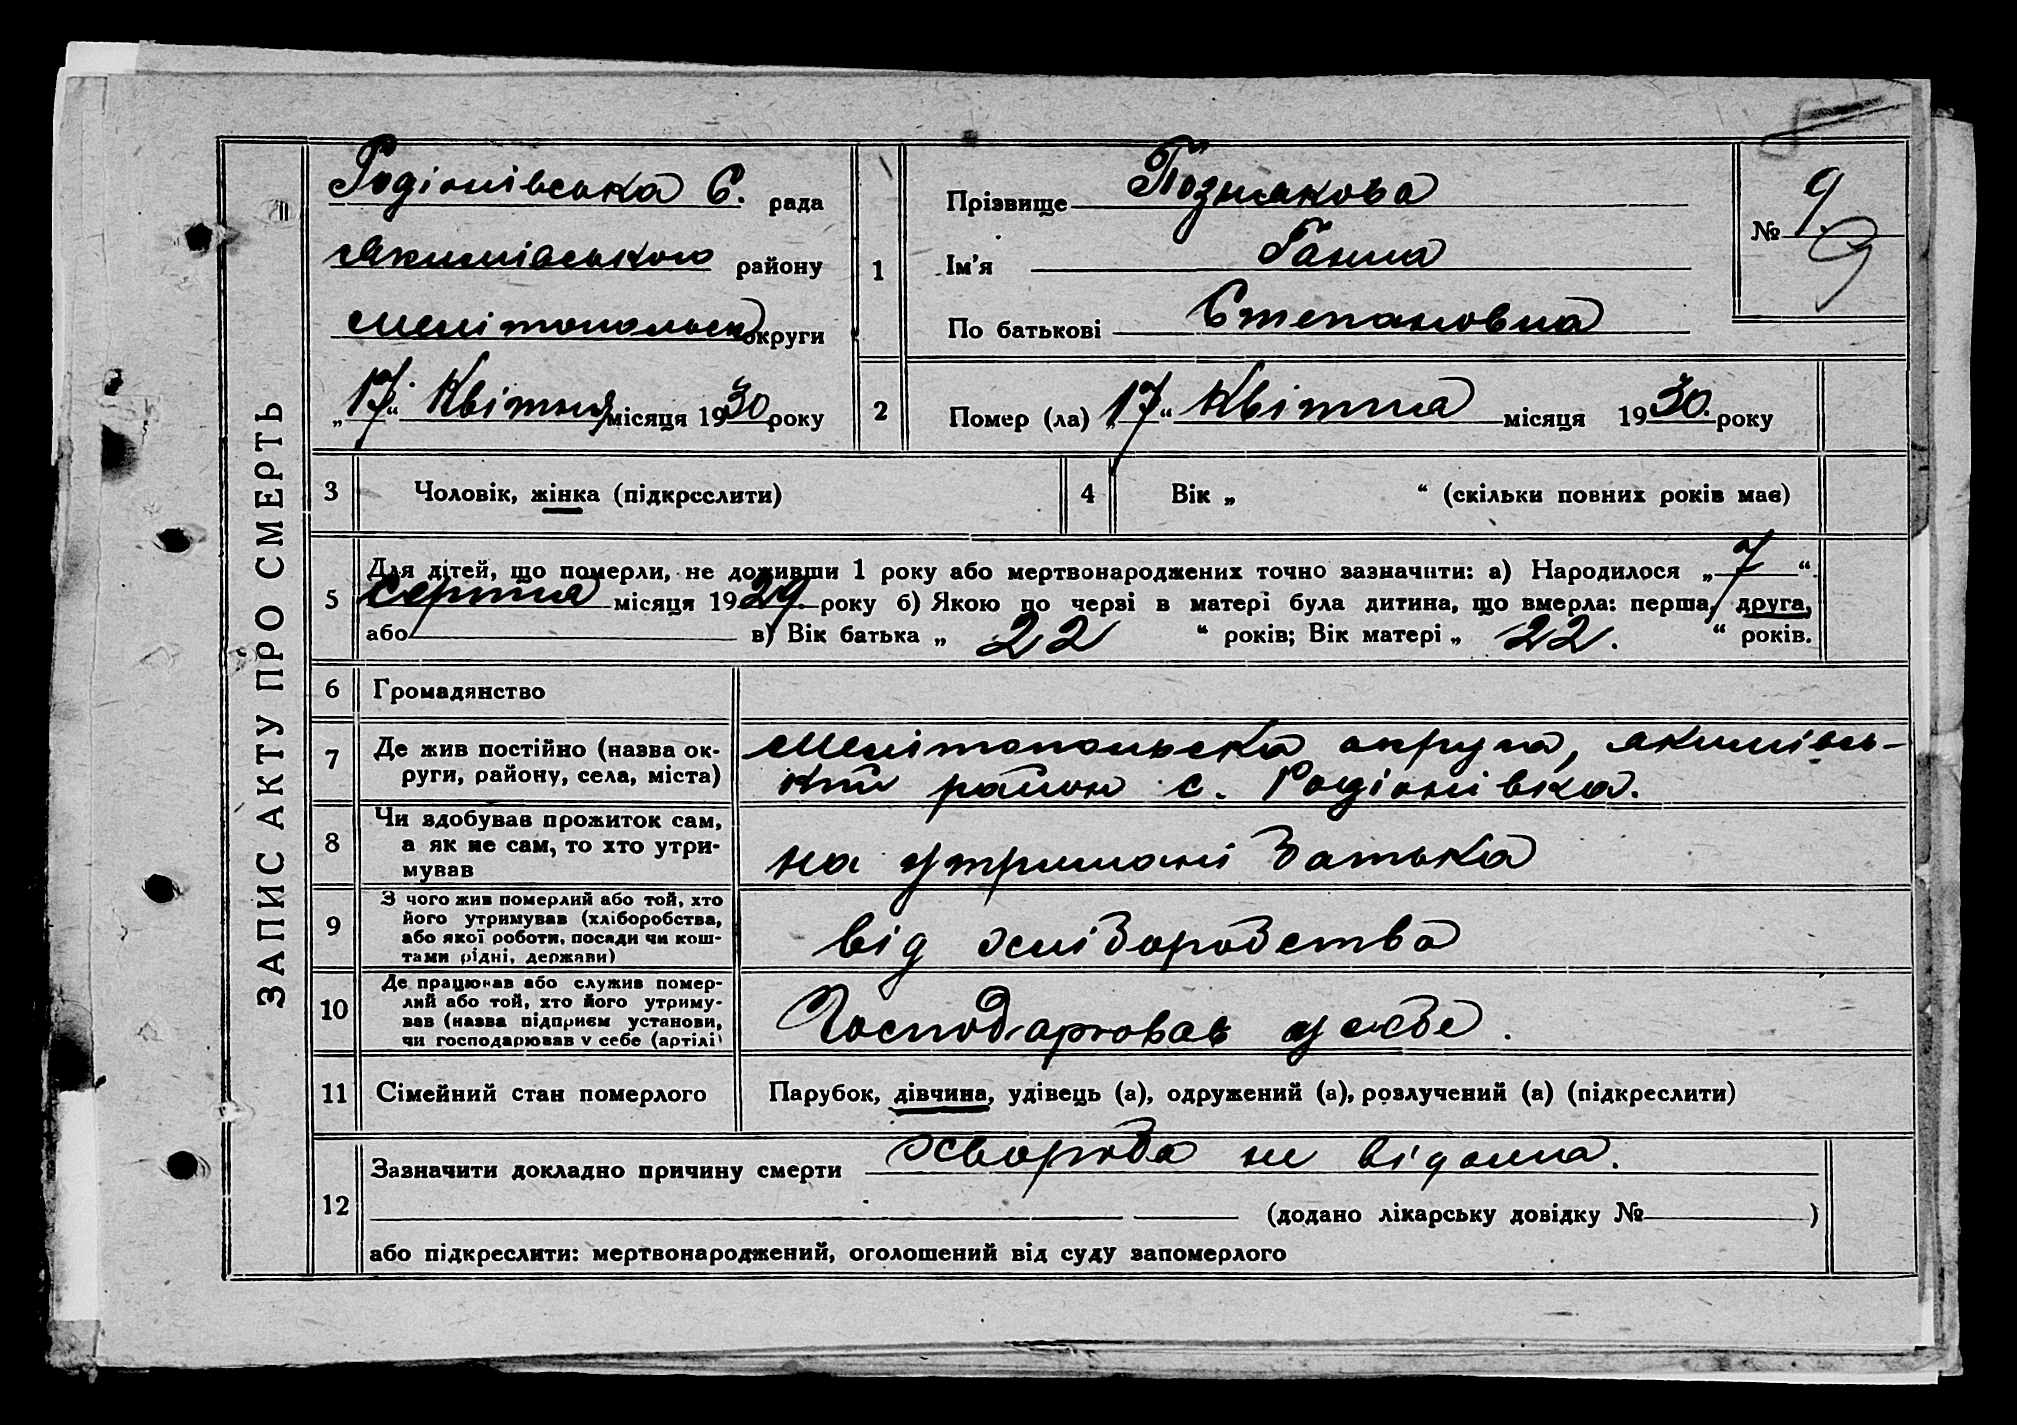 ЗАПИС АКТУ ПРО СМЕРТЬ
Родіонівська С. рада
Якимівського району
Мелітопольск округи
„17“ Квітня місяця 1930 року
1
Прізвище Познякова
Ім'я Ганна
По батькові Степановна
№ 9
9
2 Помер (ла) „17“ Квітня місяця 1930. року
3 Чоловік, жінка (підкреслити)
4 Вік „ “ (скільки повних років має)
5
Для дітей, що померли, не доживши 1 року або мертвонароджених точно зазначити: а) Народилося „7“
Серпня місяця 1929. року б) Якою по черзі в матері була дитина, що вмерла: перша, друга,
або в) Вік батька „ 22 “ років; Вік матері „ 22. “ років.
6 Громадянство
7 Де жив постійно (назва ок-
руги, району, села, міста)
Мелітопольска округа, якимівсь-
кий район с. Родіонівка.
8 Чи здобував прожиток сам,
а як не сам, то хто утри-
мував
на утримані батька
9 З чого жив померлий або той, хто
його утримував (хліборобства,
або якої роботи, посади чи кош-
тами рідні, держави)
від хліборобства
10 Де працював або служив помер-
лий або той, хто його утриму-
вав (назва підприєм установи,
чи господарював у себе (артілі)
Господарював у себе.
11 Сімейний стан померлого
Парубок, дівчина, удівець (а), одружений (а), розлучений (а) (підкреслити)
12
Зазначити докладно причину смерти хвороба не відома.
(додано лікарську довідку № )
або підкреслити: мертвонароджений, оголошений від суду запомерлого